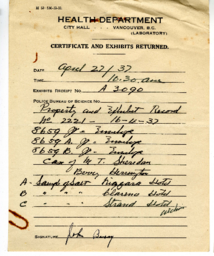 HEALTH DEPARTMENT
CITY HALL VANCOUVER, B.C.
(LABORATORY)
CERTIFICATE AND EXHIBITS RETURNED.
DATE April 22/37
TIME 10.30 am
EXHIBITS RECEIPT NO. A 3090
POLICE BUREAU OF SCIENCE NO.
Property and Exhibit Record
No 2221 - 16-4-37
8659 G - Envelope
8659 A G - Envelope
8659 B G - Envelope
Case of M. T. Sheridan
A - Sample of Salt Niagara Hotel
B " " " Clarens Hotel
C " " " Strand Hotel
SIGNATURE John